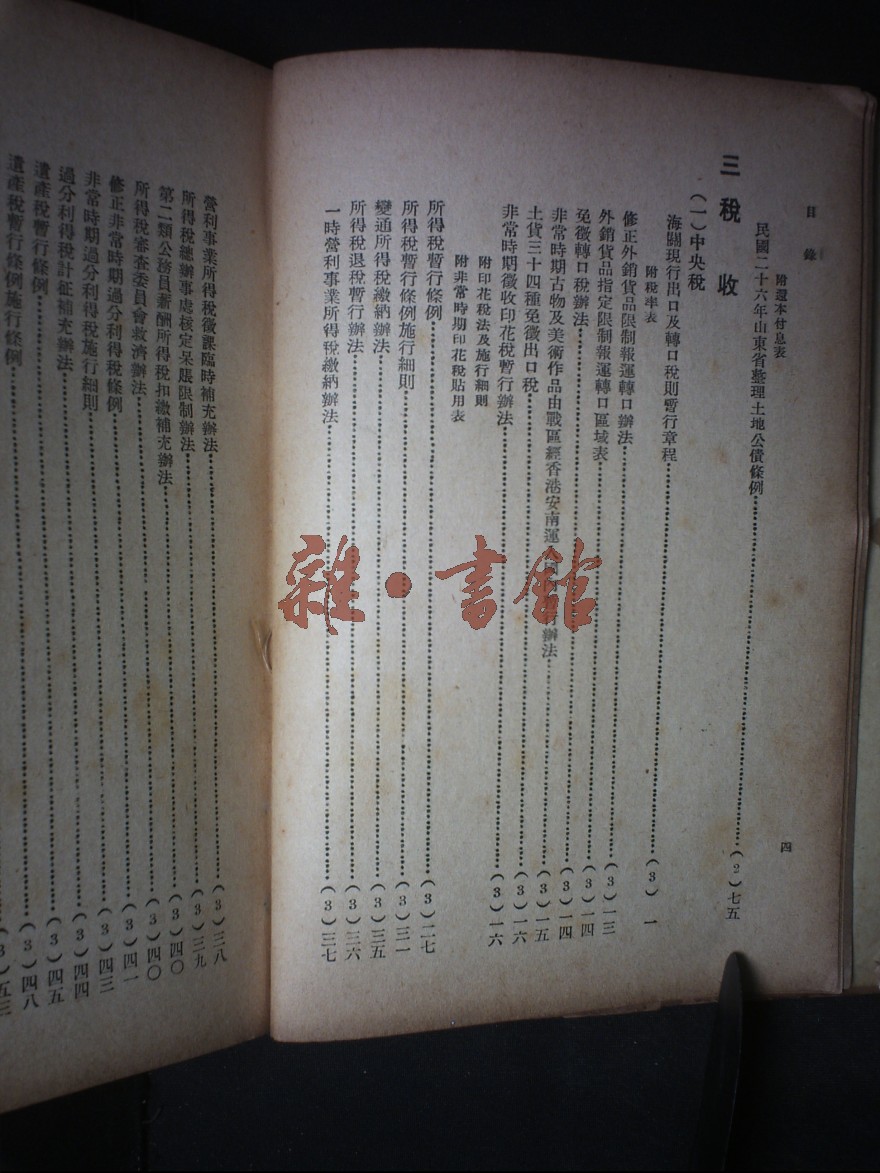 目錄
四
附還本付息表
民國二十六年山東省整理土地公債條例……(2)七五
三 稅 收
(一)中央稅
海關現行出口及轉口稅則暫行章程……(3)一
附稅率表
修正外銷貨品限制報運轉口辦法……(3)一三
外銷貨品指定限制報運轉口區域表……(3)一四
免徵轉口稅辦法……(3)一四
非常時期古物及美術作品由戰區經香港安南運 辦法……(3)一五
土貨三十四種免徵出口稅……(3)一六
非常時期徵收印花稅暫行辦法……(3)一六
附印花稅法及施行細則
附非常時期印花稅貼用表
所得稅暫行條例……(3)二七
所得稅暫行條例施行細則……(3)三一
變通所得稅繳納辦法……(3)三五
所得稅退稅暫行辦法……(3)三六
一時營利事業所得稅繳納辦法……(3)三七
營利事業所得稅徵課臨時補充辦法……(3)三八
所得稅總辦事處核定呆賬限制辦法……(3)三九
第二類公務員薪酬所得稅扣繳補充辦法……(3)四〇
所得稅審查委員會救濟辦法……(3)四〇
修正非常時期過分利得稅條例……(3)四一
非常時期過分利得稅施行細則……(3)四三
過分利得稅計征補充辦法……(3)四四
遺產稅暫行條例……(3)四五
遺產稅暫行條例施行條例……(3)四八
(3)五三
雜·書館